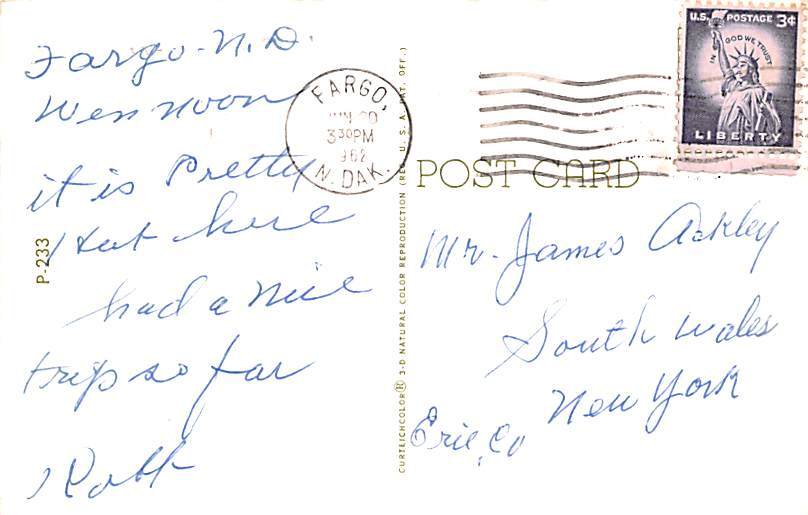 Fargo - N. D.
Wen noon
it is Pretty
Hot here
had a nice
trip so far
Robt
P-233
CURTEICHCOLOR® 3-D NATURAL COLOR REPRODUCTION (REG. U.S.A. PAT. OFF.)
FARGO,
JUN 20
3 30 PM
1962
N. DAK.
U.S. POSTAGE 3¢
IN GOD WE TRUST
LIBERTY
POST CARD
Mr. James Ackley
South Wales
New York
Erie, Co